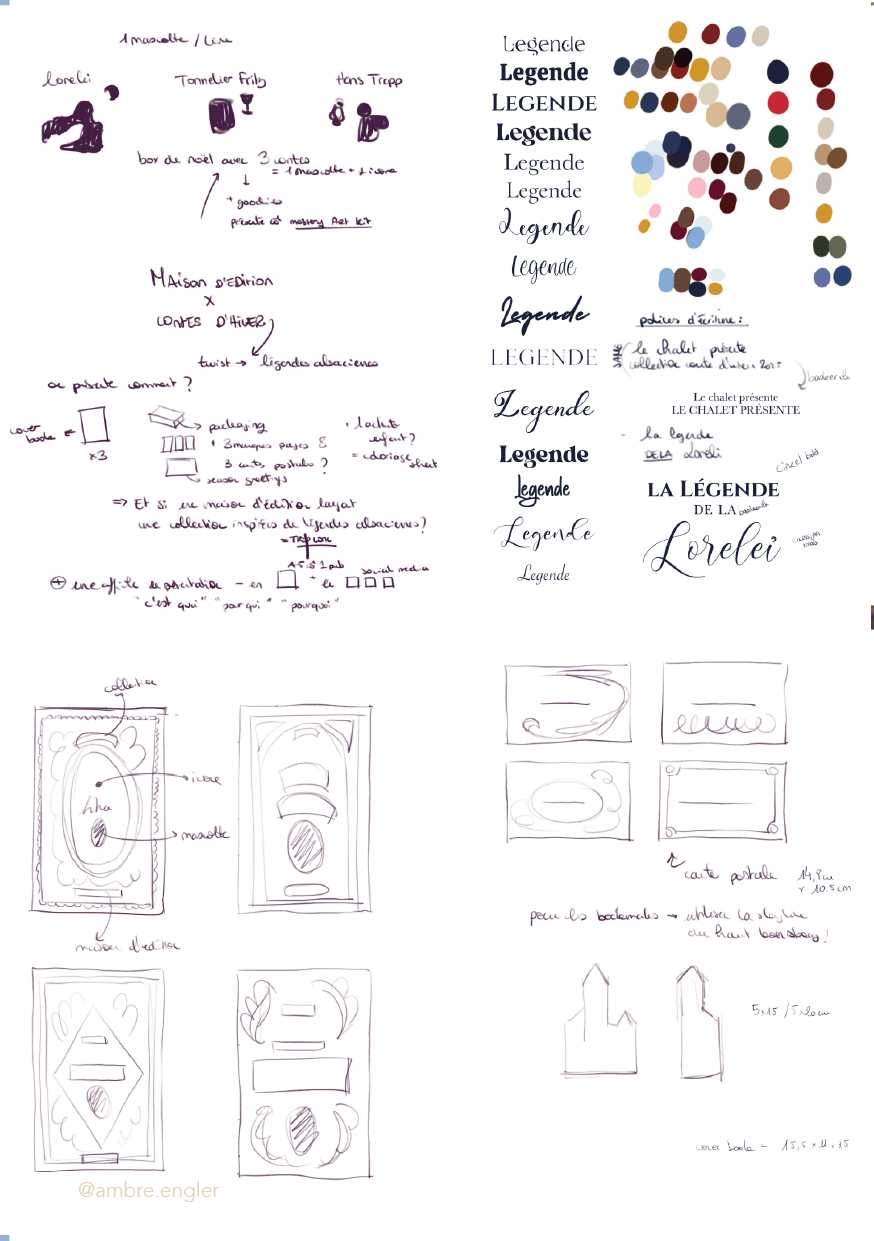 1 mascotte / livre
Lorelei
Tonnelier Fritz
Hans Trapp
box de noël avec 3 contes
= 1 mascotte + 1 icone
+ goodies
MAISON D'EDITION
X
CONTES D'HIVER
twist → légendes alsaciennes
ou présente comment ?
cover
book
x3
packaging
+ 3 marques pages &
3 cartes postales ?
season greetings
+ 1 activité
enfant ?
= coloriage
sheet
=> Et si une maison d'édition lançait
une collection inspirées de légendes alsaciennes ?
A5 à 1 pub
social media
"c'est quoi" "pour qui" "pourquoi"
Legende
Legende
LEGENDE
Legende
Legende
Legende
Legende
Legende
Legende
LEGENDE
Legende
Legende
Legende
Legende
Legende
polices d'écriture :
le chalet présente
Le chalet présente
LE CHALET PRÉSENTE
- la légende
DE LA Lorelei
Cinzel bold
LA LÉGENDE
DE LA
Lorelei
collection
icone
mascotte
maison d'edition
carte postale
14,8cm
x 10.5cm
pour les bookmarks → utiliser la
du haut
5x15 /
cover book =
@ambre.engler